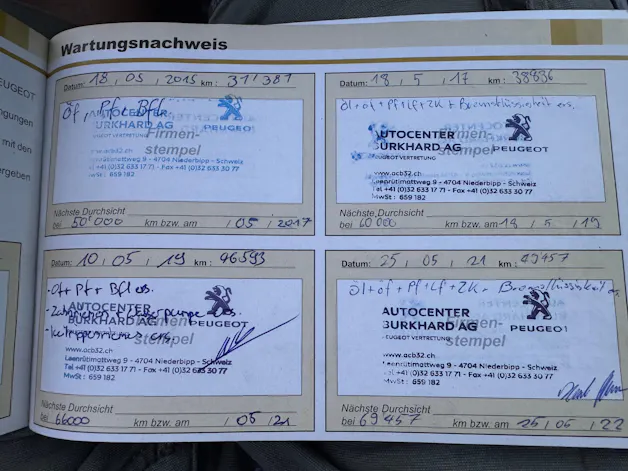 Wartungsnachweis
Datum: 18 , 05 , 2015 km: 31'381
Öf, Pf, Bfl
AUTOCENTER
BURKHARD AG
PEUGEOT
EUGEOT VERTRETUNG
Firmen-
stempel
www.acb32.ch
Laenrütimattweg 9 - 4704 Niederbipp - Schweiz
Tel +41 (0)32 633 17 71 - Fax +41 (0)32 633 30 77
MwSt : 659 182
Nächste Durchsicht
bei 50'000 km bzw. am / 05 / 2017
Datum: 18 , 5 , 17 km: 38836
Öl + öf + Pf + Lf + ZK + Bremsflüssigkeit ers.
AUTOCENTER
BURKHARD AG
PEUGEOT
PEUGEOT VERTRETUNG
Firmen-
stempel
www.acb32.ch
Laenrütimattweg 9 - 4704 Niederbipp - Schweiz
Tel +41 (0)32 633 17 71 - Fax +41 (0)32 633 30 77
MwSt : 659 182
Nächste Durchsicht
bei 60000 km bzw. am 18 / 5 / 19
Datum: 10 , 05 , 19 km: 46593
- Öf + Pf + Bfl ers.
- Zahnriemen + Wasserpumpe ers.
- Keilrippenriemen ers.
AUTOCENTER
BURKHARD AG
PEUGEOT
EUGEOT VERTRETUNG
Firmen-
stempel
www.acb32.ch
Laenrütimattweg 9 - 4704 Niederbipp - Schweiz
Tel +41 (0)32 633 17 71 - Fax +41 (0)32 633 30 77
MwSt : 659 182
Nächste Durchsicht
bei 66000 km bzw. am / 05 / 21
Datum: 25 , 05 , 21 km: 49457
Öl + öf + Pf + Lf + ZK + Bremsflüssigkeit ers.
AUTOCENTER
BURKHARD AG
PEUGEOT
EUGEOT VERTRETUNG
Firmen-
stempel
www.acb32.ch
Laenrütimattweg 9 - 4704 Niederbipp - Schweiz
Tel +41 (0)32 633 17 71 - Fax +41 (0)32 633 30 77
MwSt : 659 182
Nächste Durchsicht
bei 69457 km bzw. am 25 / 05 / 22
EUGEOT
ngungen
mit den
ergeben